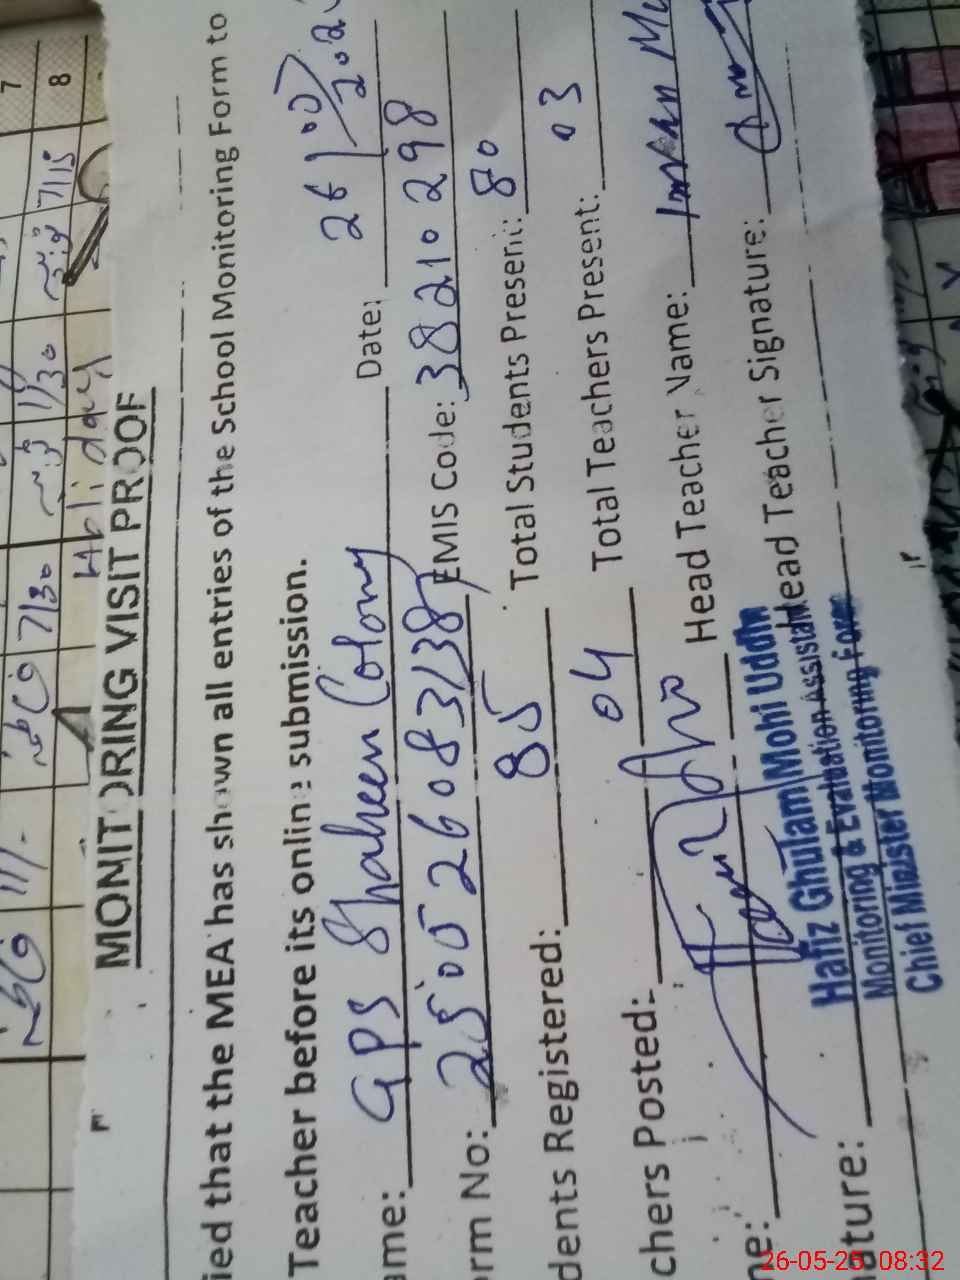 MONITORING VISIT PROOF
ied that the MEA has shown all entries of the School Monitoring Form to
Teacher before its online submission.
ame: GPS Shaheen Colony Date: 26/05/202
orm No: EMIS Code: 38210298
dents Registered: 85 Total Students Present: 80
chers Posted: 04 Total Teachers Present: 03
me: Head Teacher Name: Imran
ature: Head Teacher Signature:
Hafiz Ghulam Mohi Uddin
Monitoring & Evaluation Assistant
Chief Minister Monitoring Force
7
8
7/30
1/30
7/15
Holiday
26-05-25 08:32